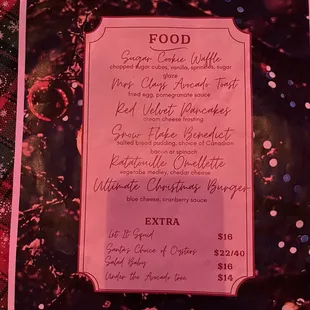 FOOD
Sugar Cookie Waffle
chopped sugar cubes, vanilla, sprinkles, sugar
glaze
Mrs Clays Avocado Toast
fried egg, pomegranate sauce
Red Velvet Pancakes
cream cheese frosting
Snow Flake Benedict
salted bread pudding, choice of Canadian
bacon or spinach
Ratatouille Omellette
vegetable medley, chedar cheese
Ultimate Christmas Burger
blue cheese, cranberry sauce
EXTRA
Let It Spud $16
Santa's Choice of Oysters $22/40
Salad Baby $16
Under the Avocado tree $14